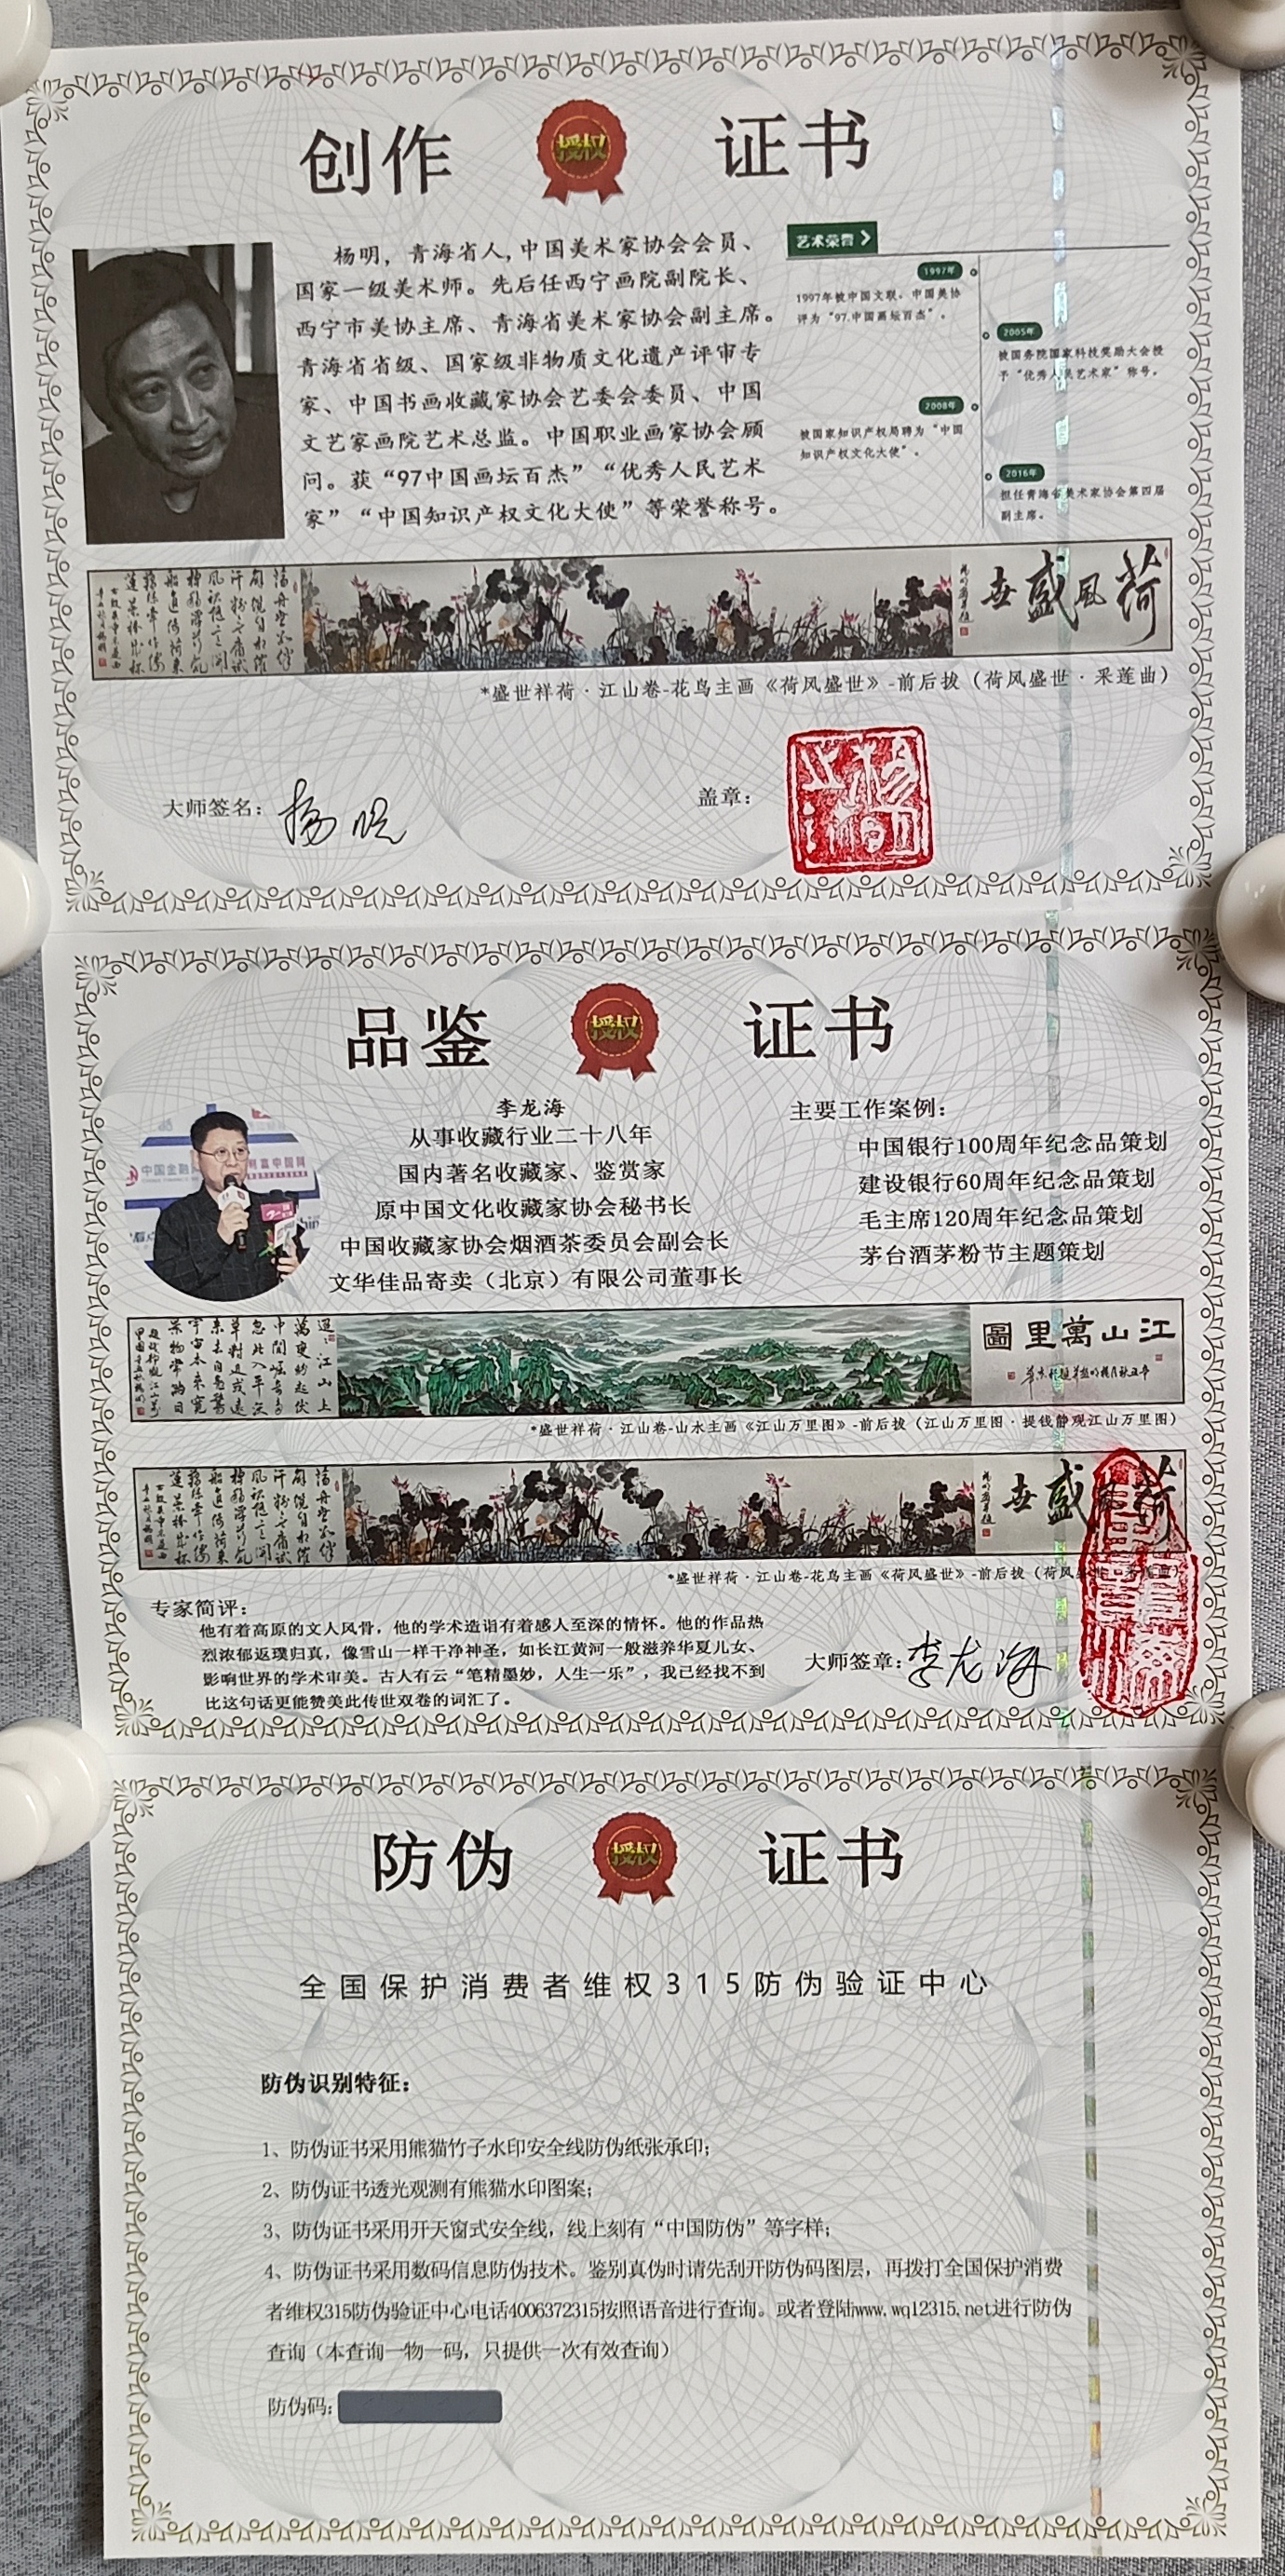 创作 授权 证书
杨明，青海省人,中国美术家协会会员、
国家一级美术师。先后任西宁画院副院长、
西宁市美协主席、青海省美术家协会副主席。
青海省省级、国家级非物质文化遗产评审专
家、中国书画收藏家协会艺委会委员、中国
文艺家画院艺术总监。中国职业画家协会顾
问。获“97中国画坛百杰”“优秀人民艺术
家”“中国知识产权文化大使”等荣誉称号。
艺术荣誉
1997年
1997年被中国文联、中国美协
评为“97.中国画坛百杰”。
2005年
被国务院国家科技奖励大会授
予“优秀人民艺术家”称号。
2008年
被国家知识产权局聘为“中国
知识产权文化大使”。
2016年
担任青海省美术家协会第四届
副主席。
荷风盛世
*盛世祥荷·江山卷-花鸟主画《荷风盛世》-前后拔（荷风盛世·采莲曲）
大师签名：杨明
盖章：
品鉴 授权 证书
李龙海
从事收藏行业二十八年
国内著名收藏家、鉴赏家
原中国文化收藏家协会秘书长
中国收藏家协会烟酒茶委员会副会长
文华佳品寄卖（北京）有限公司董事长
主要工作案例：
中国银行100周年纪念品策划
建设银行60周年纪念品策划
毛主席120周年纪念品策划
茅台酒茅粉节主题策划
中国金融
江山萬里圖
*盛世祥荷·江山卷-山水主画《江山万里图》-前后拔（江山万里图·提钱静观江山万里图）
*盛世祥荷·江山卷-花鸟主画《荷风盛世》-前后拔（荷风
专家简评：
他有着高原的文人风骨，他的学术造诣有着感人至深的情怀。他的作品热
烈浓郁返璞归真，像雪山一样干净神圣，如长江黄河一般滋养华夏儿女、
影响世界的学术审美。古人有云“笔精墨妙，人生一乐”，我已经找不到
比这句话更能赞美此传世双卷的词汇了。
大师签章：李龙海
防伪 授权 证书
全国保护消费者维权315防伪验证中心
防伪识别特征：
1、防伪证书采用熊猫竹子水印安全线防伪纸张承印；
2、防伪证书透光观测有熊猫水印图案；
3、防伪证书采用开天窗式安全线，线上刻有“中国防伪”等字样；
4、防伪证书采用数码信息防伪技术。鉴别真伪时请先刮开防伪码图层，再拨打全国保护消费
者维权315防伪验证中心电话4006372315按照语音进行查询。或者登陆www.wq12315.net进行防伪
查询（本查询一物一码，只提供一次有效查询）
防伪码：